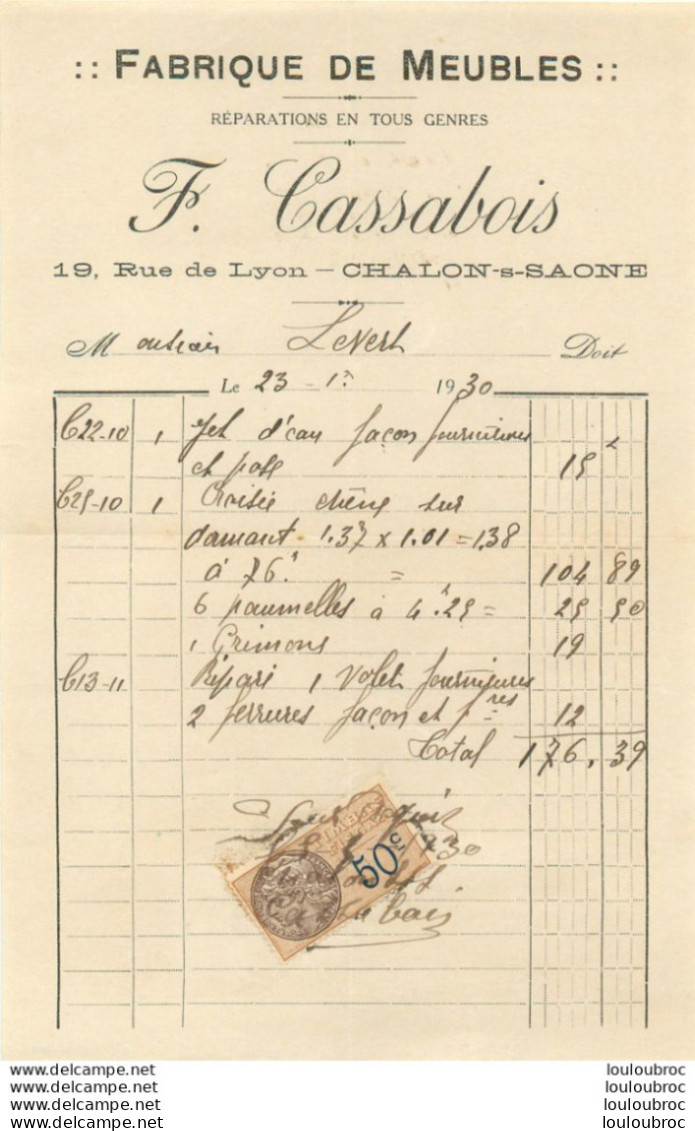 :: FABRIQUE DE MEUBLES ::
RÉPARATIONS EN TOUS GENRES
F. Cassabois
19, Rue de Lyon - CHALON-s-SAONE
Monsieur Levert Doit
Le 23 - 1r 1930
C22-10 1 Jet d'eau façon fournitures
et pose 15
C25-10 1 Croisée chêne sur
damant 1.37 x 1.01 = 1.38
à 76f = 104 89
6 paumelles à 4f.25 = 25 50
1 Crimons 19
C13-11 Réparé 1 volet fournitures
2 ferrures façon et fres 12
Total 176.39
Pour acquit
1930
50c
Cassabois
www.delcampe.net louloubroc
www.delcampe.net louloubroc
www.delcampe.net louloubroc
www.delcampe.net louloubroc